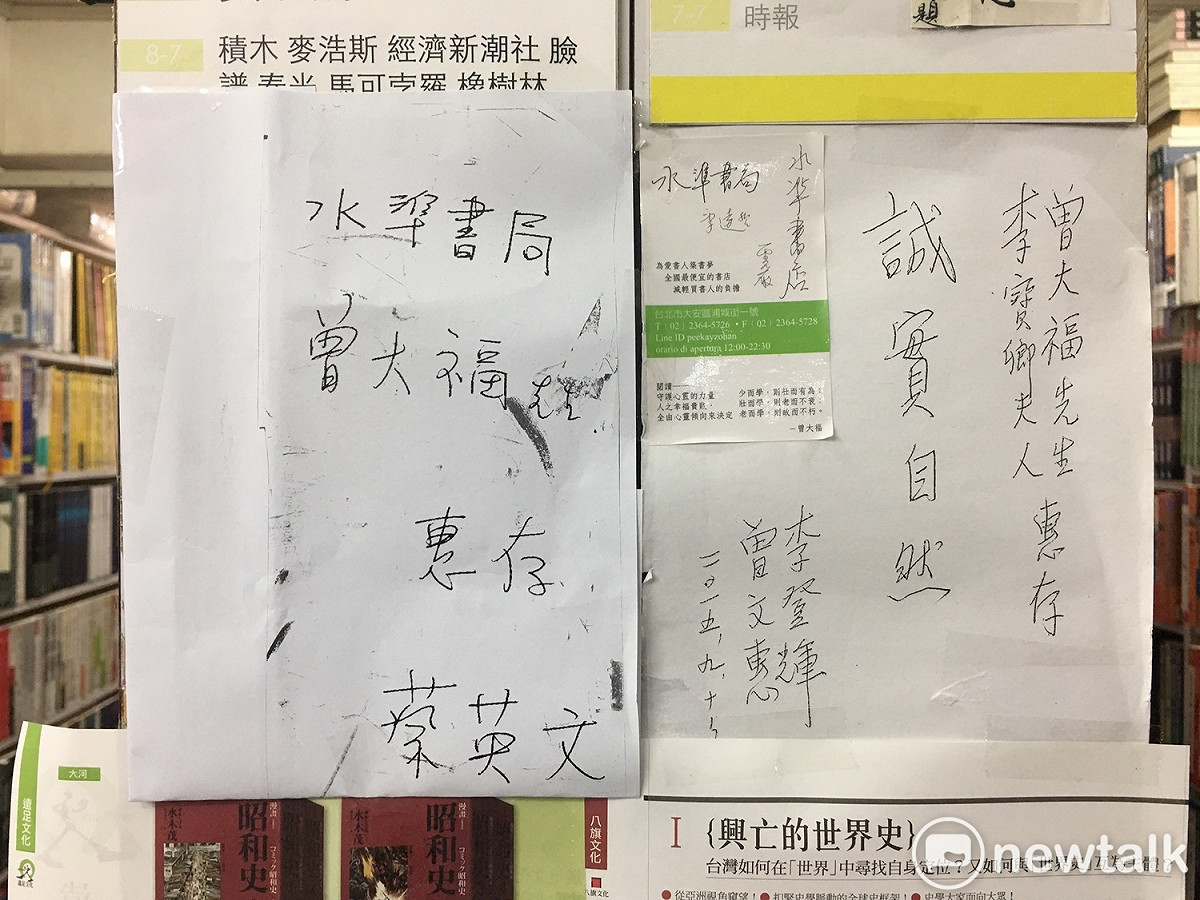 8-7
積木 麥浩斯 經濟新潮社 臉
譜 春光 馬可孛羅 橡樹林
7-7
時報
題
水準書局
曾大福先生
惠存
蔡英文
水準書局
李遠哲
水準書店
為愛書人築書夢
全國最便宜的書店
減輕買書人的負擔
台北市大安區浦城街一號
T（02）2364-5726 • F（02）2364-5728
Line ID peekayzohan
orario di apertura 12:00-22:30
閱讀——
守護心靈的力量
人之幸福貴賤，
全由心靈傾向來決定
少而學，則壯而有為；
壯而學，則老而不衰；
老而學，則故而不朽。
—曾大福
曾大福先生
李寶卿夫人 惠存
誠實自然
李登輝
曾文惠
二〇一五，九，十
大河
遠足文化
漫畫
昭和史
コミック昭和史
水木茂
漫畫
昭和史
コミック昭和史
水木茂
八旗文化
八旗文化
I {興亡的世界史}
台灣如何在「世界」中尋找自身定位？又如何與「世界史」互為主體
從亞洲視角窺望！
扣緊史學脈動的全球史框架！
史學大家面向大眾！
newtalk